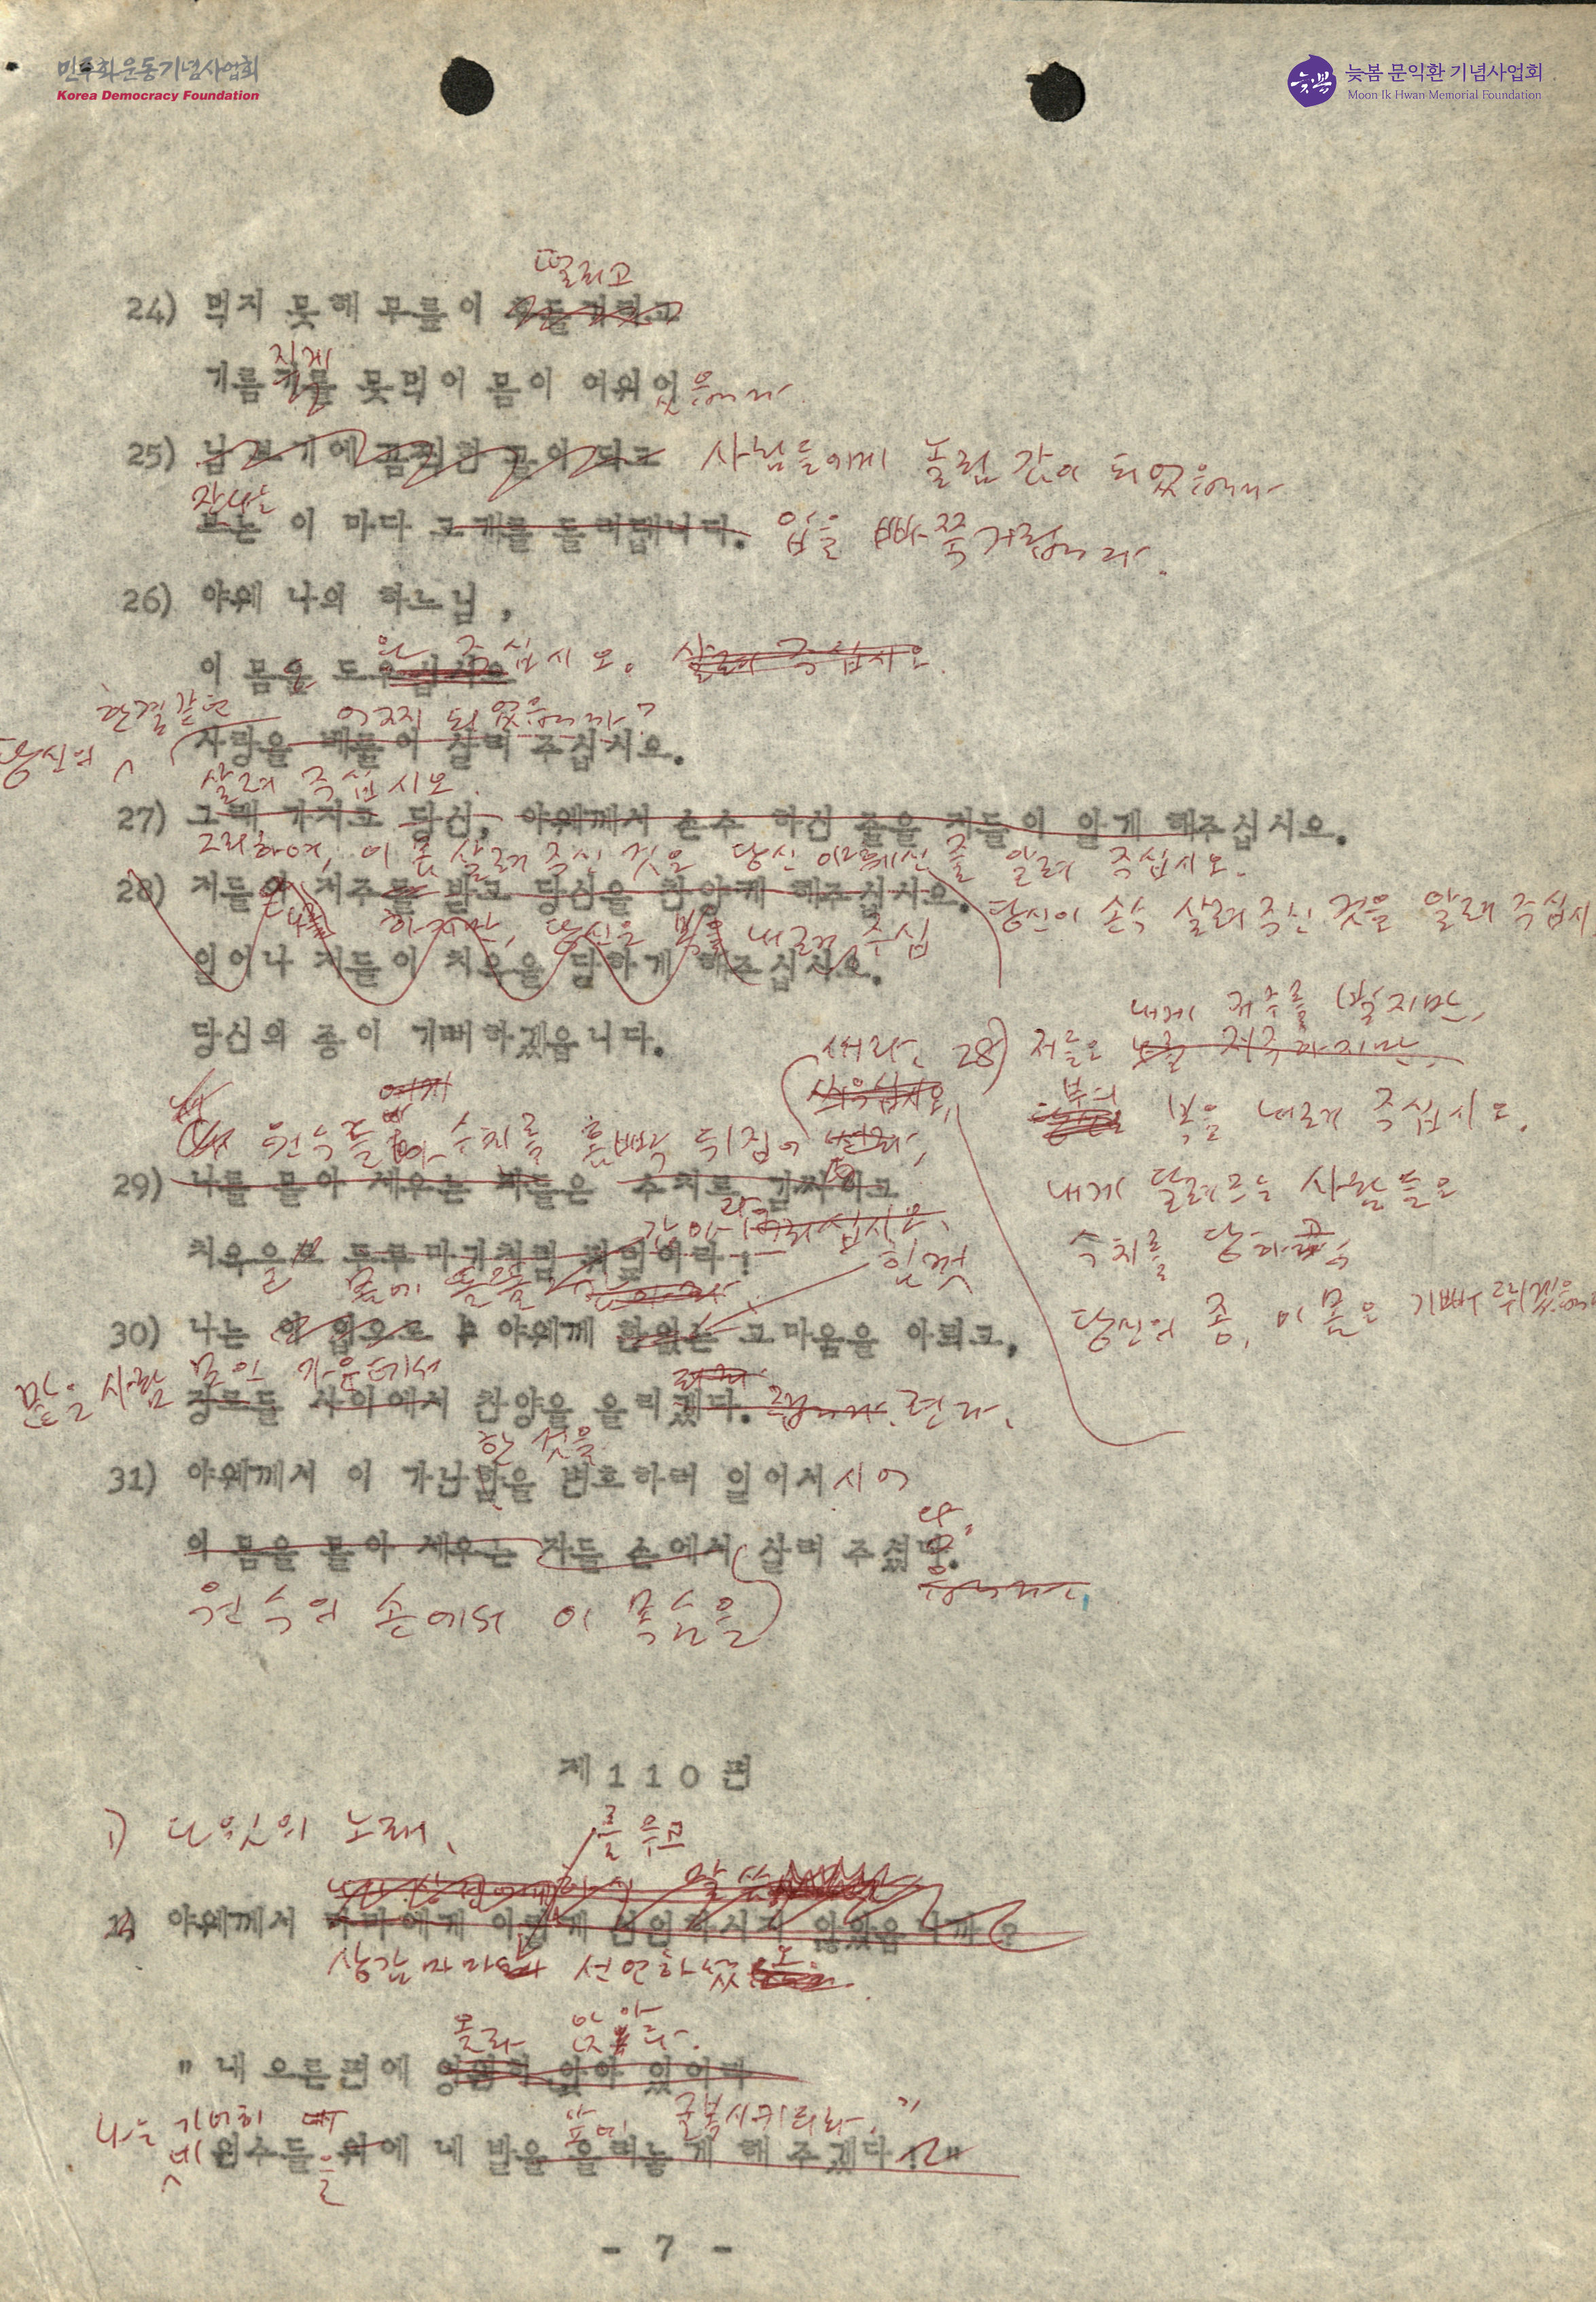 민주화운동기념사업회
Korea Democracy Foundation
늦봄 문익환 기념사업회
Moon Ik Hwan Memorial Foundation
떨리고
24) 먹지 못해 무릎이
지게
기름기를 못먹어 몸이 여위었읍니다
25) 남 보기에 끔찍한 꼴이 되고 사람들에게 놀림감이 되었읍니다
보는 이 마다 고개를 돌리댑니다. 입을 삐쭉거립니다.
26) 야웨 나의 하느님,
와 주십시오. 살려 주십시오
이 몸을 도우십시오
한결같은 어찌 되었읍니까?
당신의 사랑을 베풀어 살려 주십시오.
살려 주십시오.
27) 그래 가지고 당신, 야웨께서 손수 하신 줄을 저들이 알게 해주십시오.
그리하여, 이 몸 살려 주신 것을 당신 이신 줄 알려 주십시오.
28) 저들이 저주를 받고 당신을 찬양케 해주십시오. 당신이 손수 살려 주신 것을 알려 주십시
하지만, 당신은 복을 내려 주십
일어나 저들이 치욕을 당하게 해주십시오.
내게 저주를 빌지만,
당신의 종이 기뻐하겠읍니다.
28) 저들은 나를 저주하지만,
복을 내려 주십시오.
원수들 수치를 흠뻑 뒤집어
29) 나를 몰아 세우는 자들은 수치로
내게 달려드는 사람들은
수치를 당하고
치욕을 두루마기처럼
힘껏
몸에
30) 나는 이 입으로 야웨께 한없는 고마움을 아뢰고,
당신의 종, 이 몸은
많은 사람 모인 가운데서
장로들 사이에서 찬양을 올리겠다. 련다.
한 것을
31) 야웨께서 이 가난함을 변호하러 일어서시어
이 몸을 몰아 세우는 자들 손에서 살려 주셨다.
원수의 손에서 이 목숨을
제110편
1) 다윗의 노래.
를 두고
말씀
야웨께서 이렇게 선언하시지 않았읍니까?
상감마마 선언하셨
올라 앉아라.
" 내 오른편에 앉아 있어라
나는 기어히 앞에 굴복시키리라."
네 원수들 위에 내 발을 올려놓게 해 주겠다!"
- 7 -